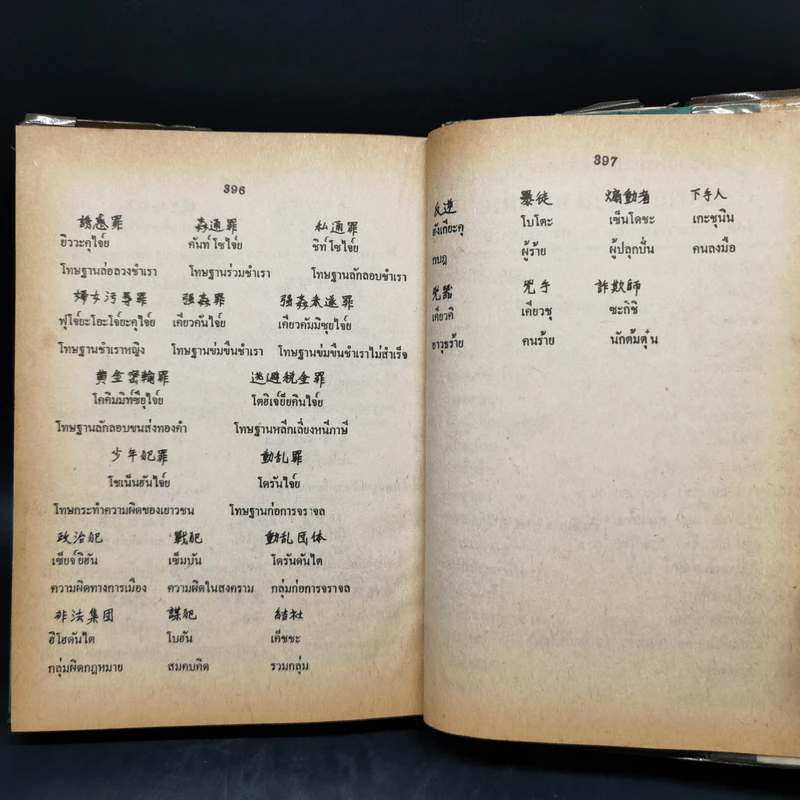 396
誘惑罪 姦通罪 私通罪
ยิววะคุไจ๎ย คันท์โซไจ๎ย ชิท์โซไจ๎ย
โทษฐานล่อลวงชำเรา โทษฐานร่วมชำเรา โทษฐานลักลอบชำเรา
婦女汚辱罪 强姦罪 强姦未遂罪
ฟุโจ๎ยะโอะโจ๎ยะคุไจ๎ย เคียวคันไจ๎ย เคียวคัมมิซุยไจ๎ย
โทษฐานชำเราหญิง โทษฐานข่มขืนชำเรา โทษฐานข่มขืนชำเราไม่สำเร็จ
黄金密輸罪 逃避税金罪
โคคิมมิท์ซียุไจ๎ย โตฮิเจ๎ยียคินไจ๎ย
โทษฐานลักลอบขนส่งทองคำ โทษฐานหลีกเลี่ยงหนีภาษี
少年犯罪 動乱罪
โชเน็นฮันไจ๎ย โดรันไจ๎ย
โทษกระทำความผิดของเยาวชน โทษฐานก่อการจราจล
政治犯 戰犯 動乱団体
เซียจ๎ยิฮัน เซ็มบัน โดรันดันไต
ความผิดทางการเมือง ความผิดในสงคราม กลุ่มก่อการจราจล
非法集团 謀犯 結社
ฮิโฮดันไต โบฮัน เค็ชชะ
กลุ่มผิดกฎหมาย สมคบคิด รวมกลุ่ม
397
反逆 暴徒 煽動者 下手人
ฮังเกียะคุ โบโตะ เซ็นโดชะ เกะชุนิน
กบฏ ผู้ร้าย ผู้ปลุกปั่น คนลงมือ
兇器 兇手 詐欺師
เคียวคิ เคียวชุ ซะกิชิ
อาวุธร้าย คนร้าย นักต้มตุ๋น